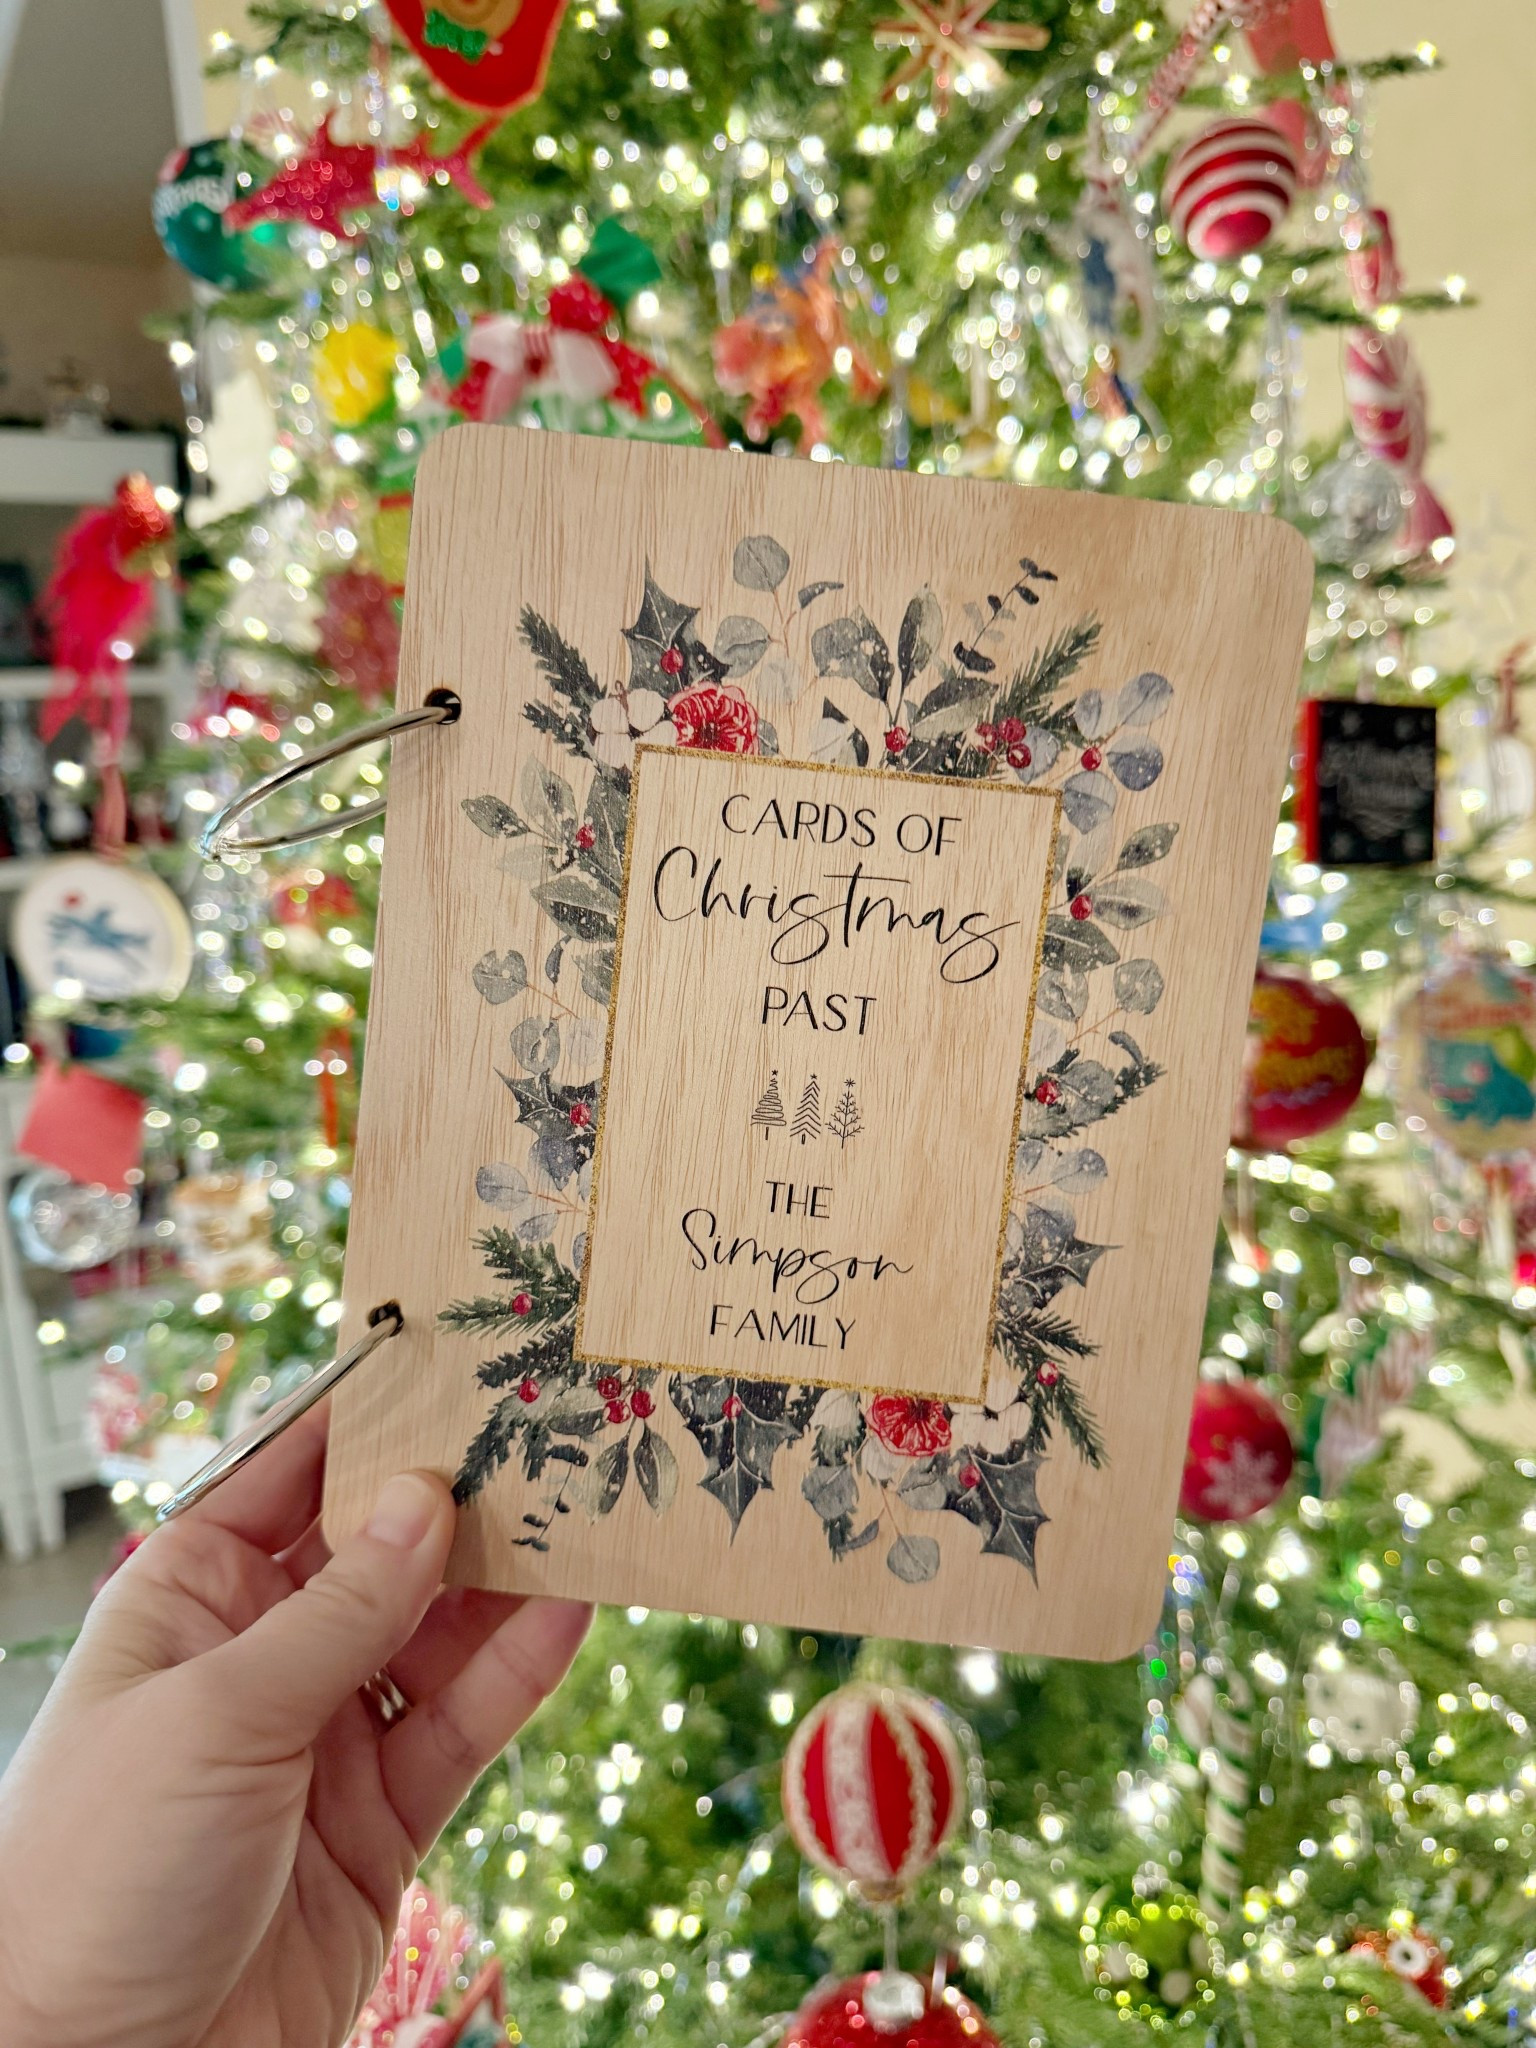 CARDS OF
Christmas
PAST
THE
Simpson
FAMILY